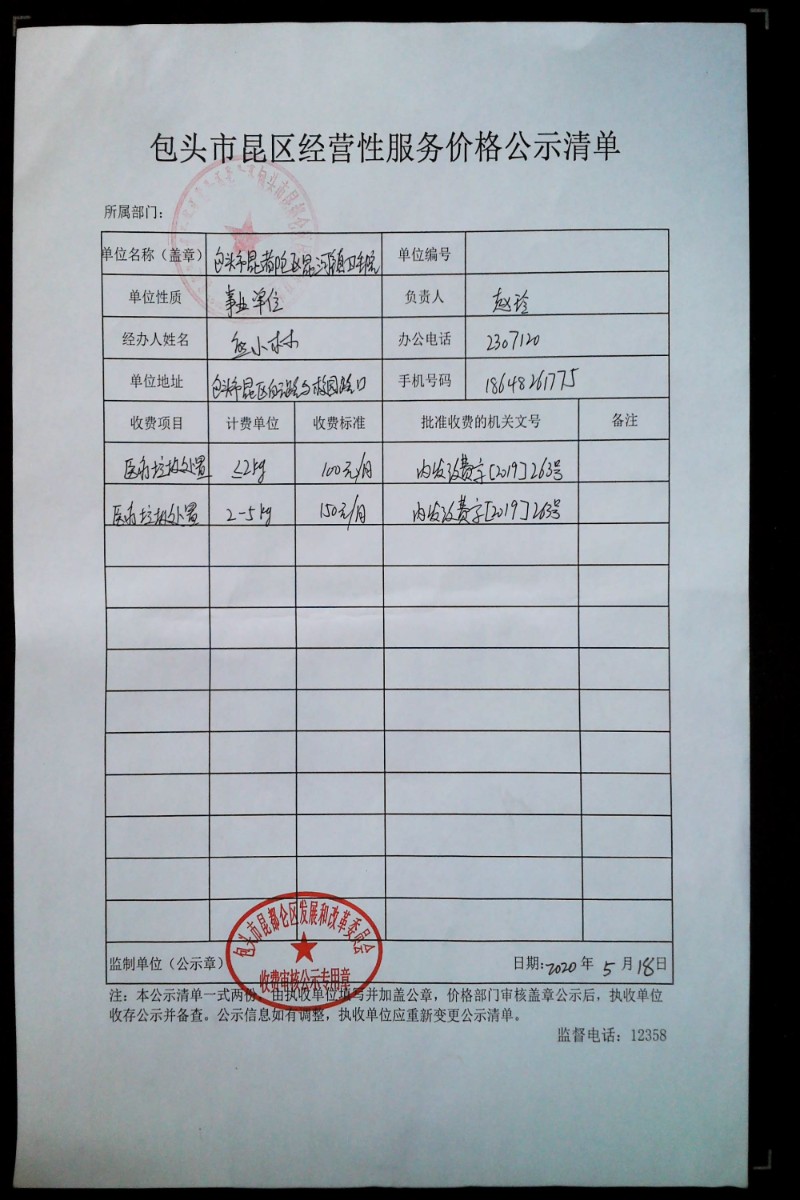 包头市昆区经营性服务价格公示清单
所属部门：
单位名称（盖章） 包头市昆都仑区昆河镇卫生院 单位编号
单位性质 事业单位 负责人 赵玲
经办人姓名 小林 办公电话 2307120
单位地址 包头市昆区 路口 手机号码 18648261775
收费项目 计费单位 收费标准 批准收费的机关文号 备注
医疗垃圾处置 ≤2kg 100元/月 内发改费字[2019]263号
医疗垃圾处置 2-5kg 150元/月 内发改费字[2019]263号
包头市昆都仑区发展和改革委员会
收费审核公示专用章
监制单位（公示章） 日期：2020年 5 月18日
注：本公示清单一式两份，由执收单位填写并加盖公章，价格部门审核盖章公示后，执收单位
收存公示并备查。公示信息如有调整，执收单位应重新变更公示清单。
监督电话：12358